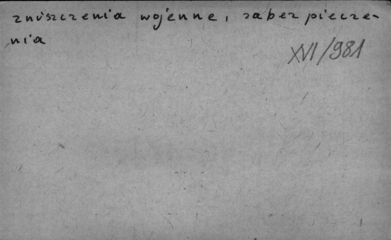 zniszczenia wojenne, zabezpiecze-
nia
XVI/981